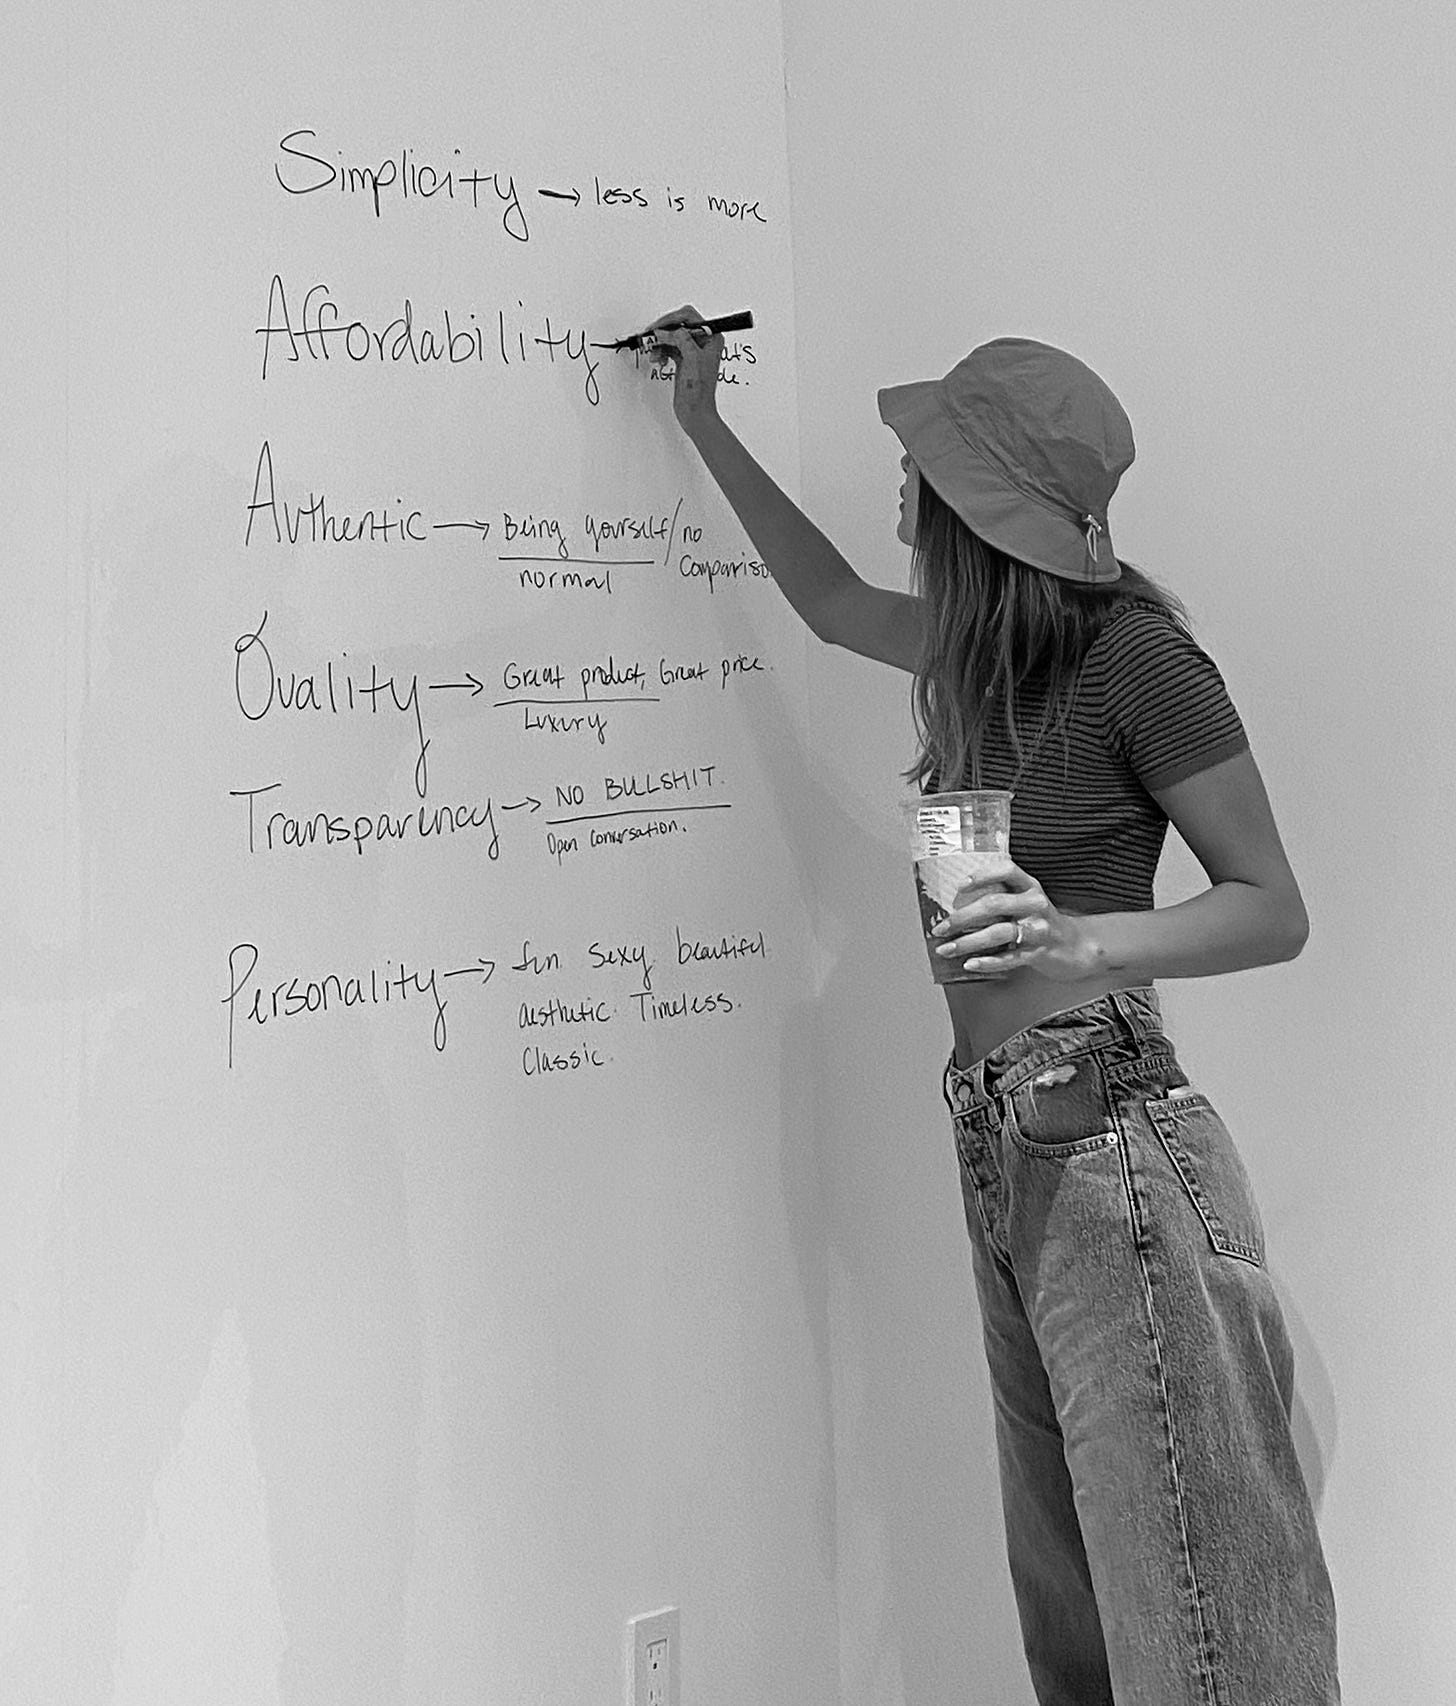 Simplicity → less is more
Affordability →
Authentic → Being yourself / no
comparison
normal
Quality → Great product, Great price.
Luxury
Transparency → NO BULLSHIT.
Open conversation.
Personality → fun. Sexy. beautiful
aesthetic. Timeless.
Classic.